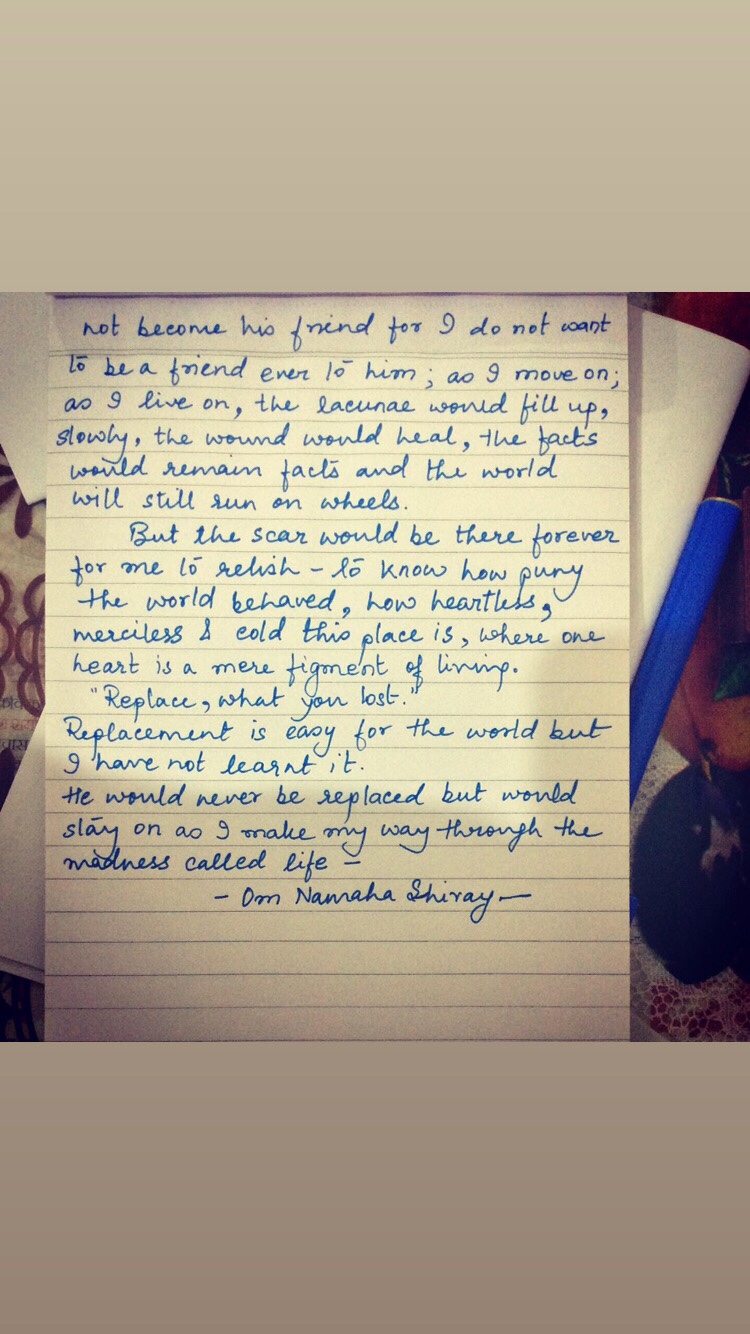 not become his friend for I do not want
to be a friend ever to him; as I move on;
as I live on, the lacunae would fill up,
slowly, the wound would heal, the facts
would remain facts and the world
will still run on wheels.
But the scar would be there forever
for me to relish - to know how puny
the world behaved, how heartless,
merciless & cold this place is, where one
heart is a mere figment of living.
"Replace, what you lost."
Replacement is easy for the world but
I have not learnt it.
He would never be replaced but would
stay on as I make my way through the
madness called life -
- Om Namaha Shivay -